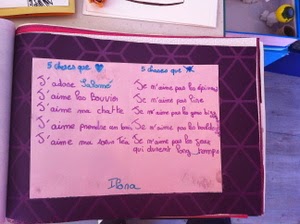 5 choses que
5 choses que
J'adore Salomé
J'aime les Bouvier
J'aime ma chatte
J'aime prendre un bain
J'aime ma sœur Téa
Je n'aime pas les épinards
Je n'aime pas lire
Je n'aime pas les gens
Je n'aime pas les
Je n'aime pas les
qui durent long temps
Ilona